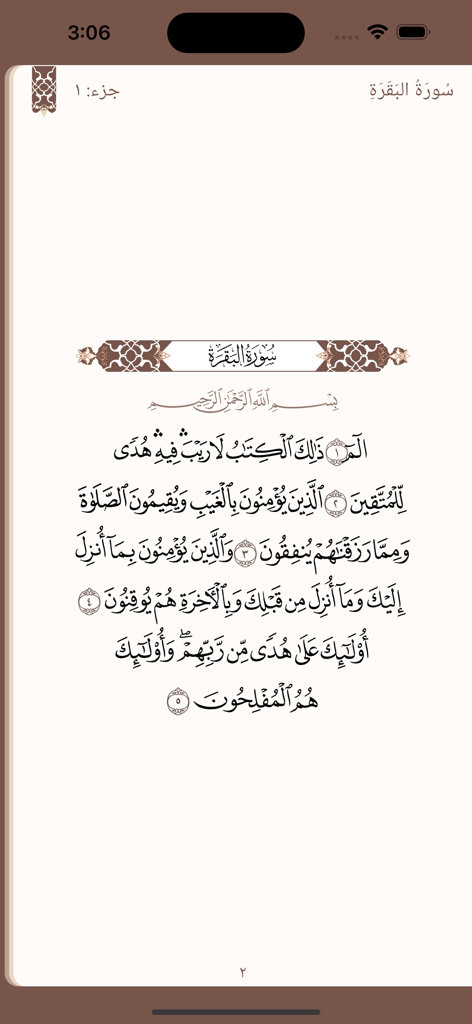 3:06
سُورَةُ البَقَرَةِ
جزء: ١
سُورَةُ البَقَرَةِ
بِسْمِ ٱللَّهِ ٱلرَّحْمَٰنِ ٱلرَّحِيمِ
الٓمٓ ١ ذَٰلِكَ ٱلْكِتَٰبُ لَا رَيْبَۛ فِيهِۛ هُدًى
لِّلْمُتَّقِينَ ٢ ٱلَّذِينَ يُؤْمِنُونَ بِٱلْغَيْبِ وَيُقِيمُونَ ٱلصَّلَوٰةَ
وَمِمَّا رَزَقْنَٰهُمْ يُنفِقُونَ ٣ وَٱلَّذِينَ يُؤْمِنُونَ بِمَآ أُنزِلَ
إِلَيْكَ وَمَآ أُنزِلَ مِن قَبْلِكَ وَبِٱلْأَخِرَةِ هُمْ يُوقِنُونَ ٤
أُو۟لَٰٓئِكَ عَلَىٰ هُدًى مِّن رَّبِّهِمْۖ وَأُو۟لَٰٓئِكَ
هُمُ ٱلْمُفْلِحُونَ ٥
٢